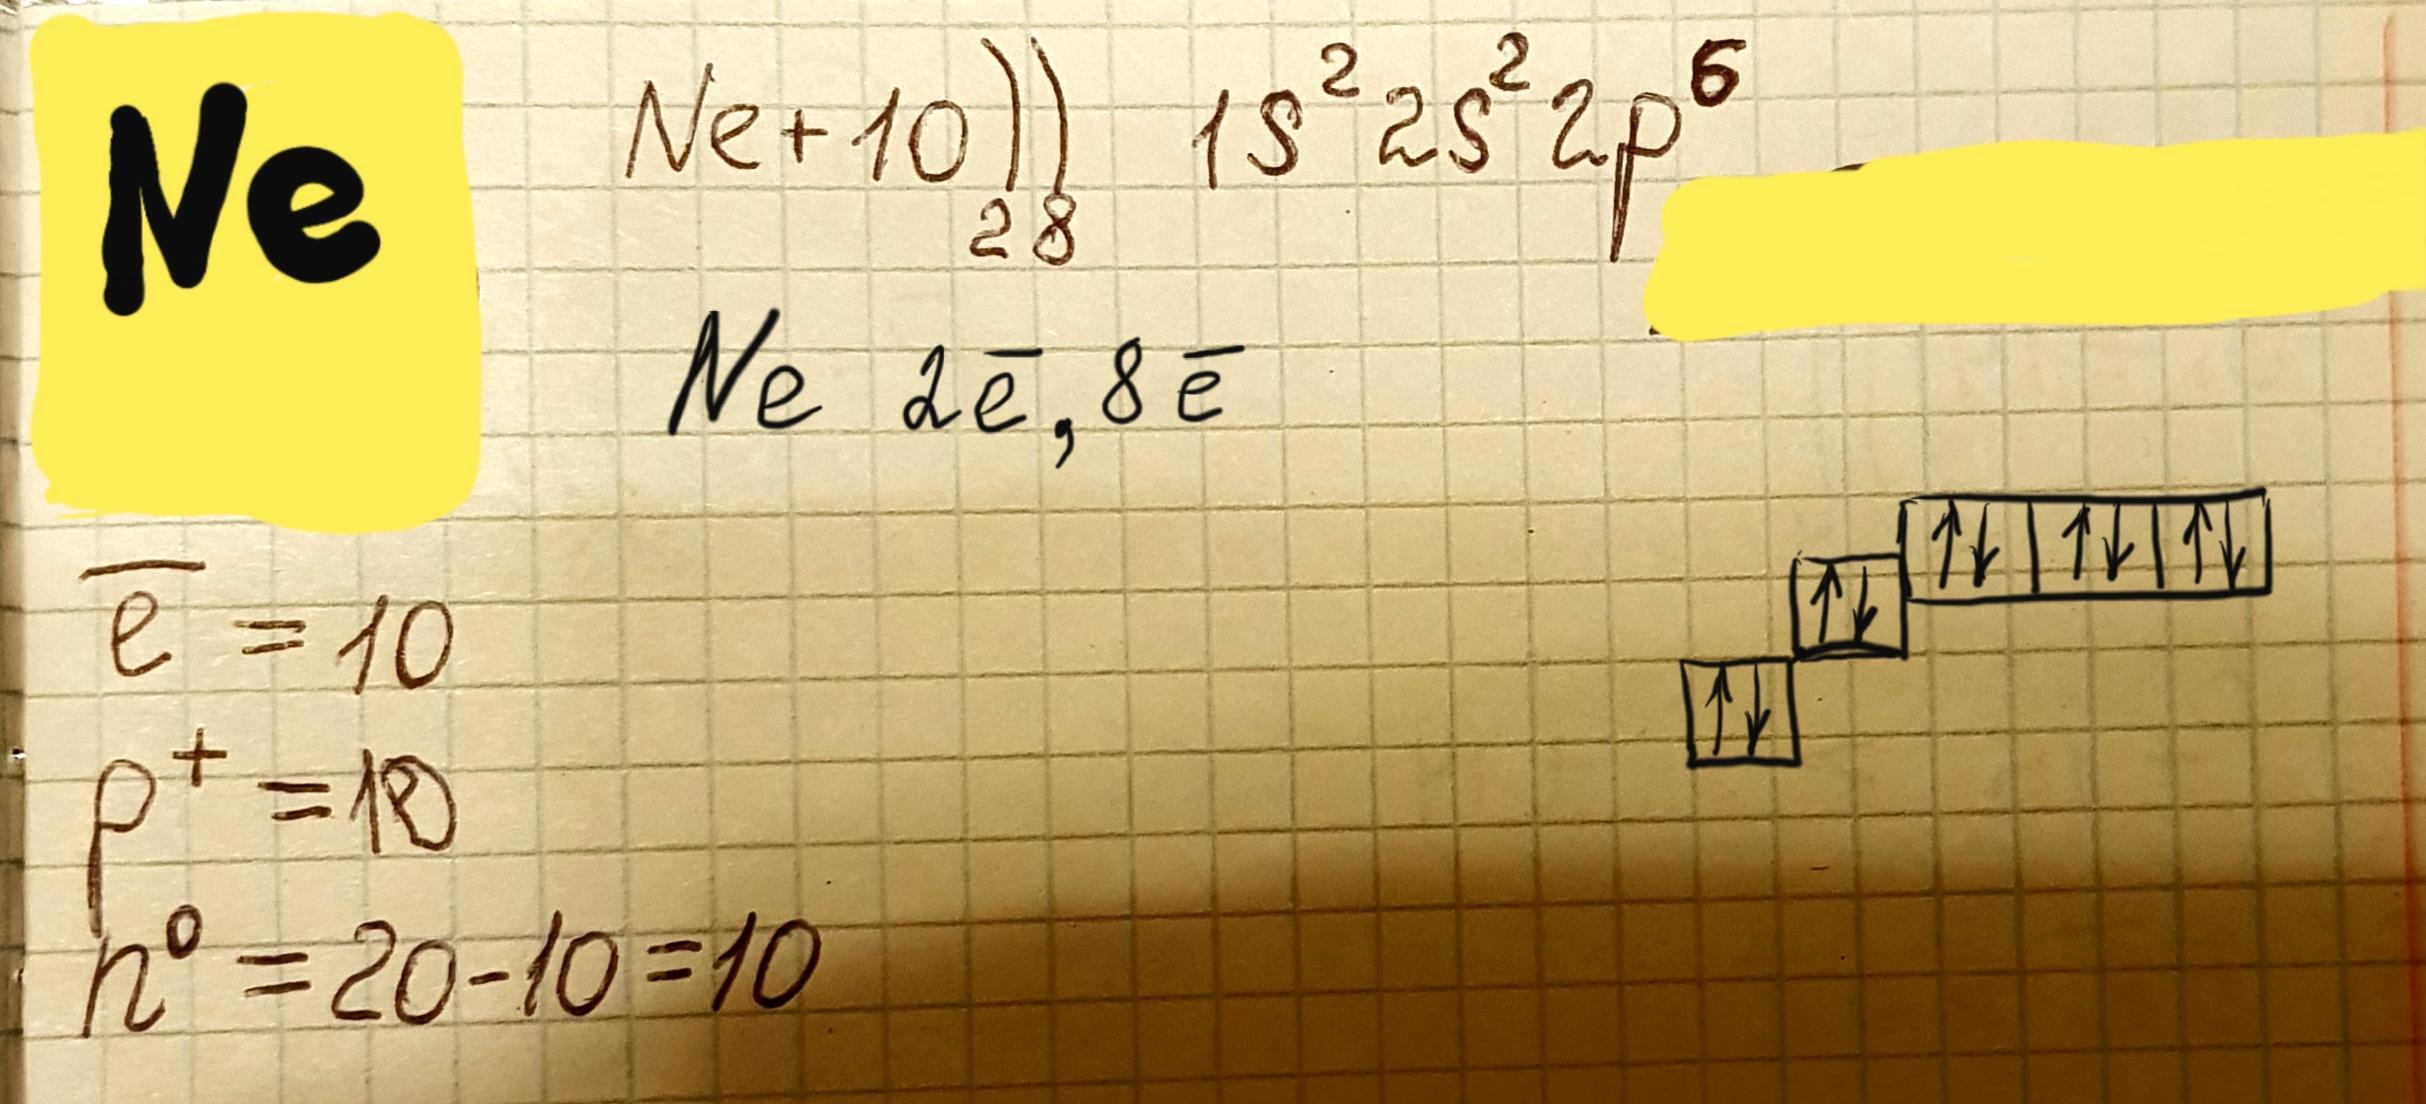 Ne
Ne+10)) 1s²2s²2p⁶
2 8
Ne 2e̅, 8e̅
e̅ = 10
p⁺ = 10
n⁰ = 20-10=10
↑↓ ↑↓ ↑↓
↑↓
↑↓